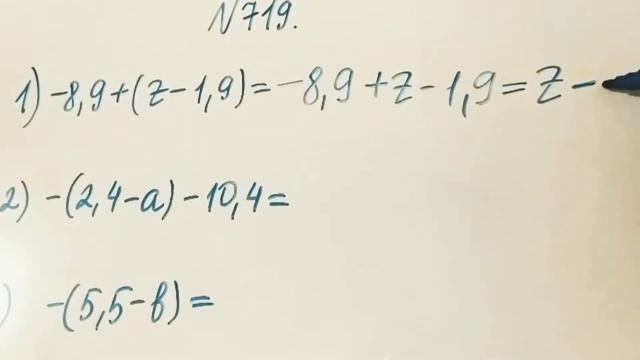 N719.
1) -8,9+(z-1,9)=-8,9+z-1,9=z-
2) -(2,4-a)-10,4=
) -(5,5-в)=